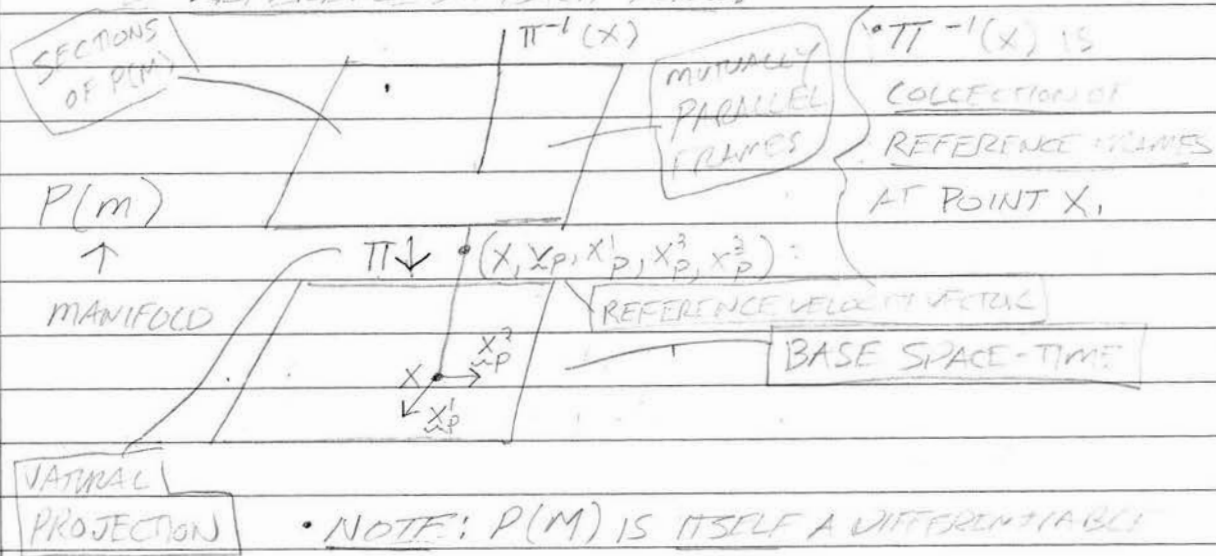 π⁻¹(X)
SECTIONS
OF P(M)
MUTUALLY
PARALLEL
FRAMES
• π⁻¹(X) IS
COLLECTION OF
REFERENCE FRAMES
AT POINT X.
P(m)
↑
MANIFOLD
π↓ (X, V̰p, X¹p, X³p, X³p):
REFERENCE VELOCITY VECTOR
BASE SPACE-TIME
X X̰²p
X̰¹p
NATURAL
PROJECTION
• NOTE: P(M) IS ITSELF A DIFFERENTIABLE